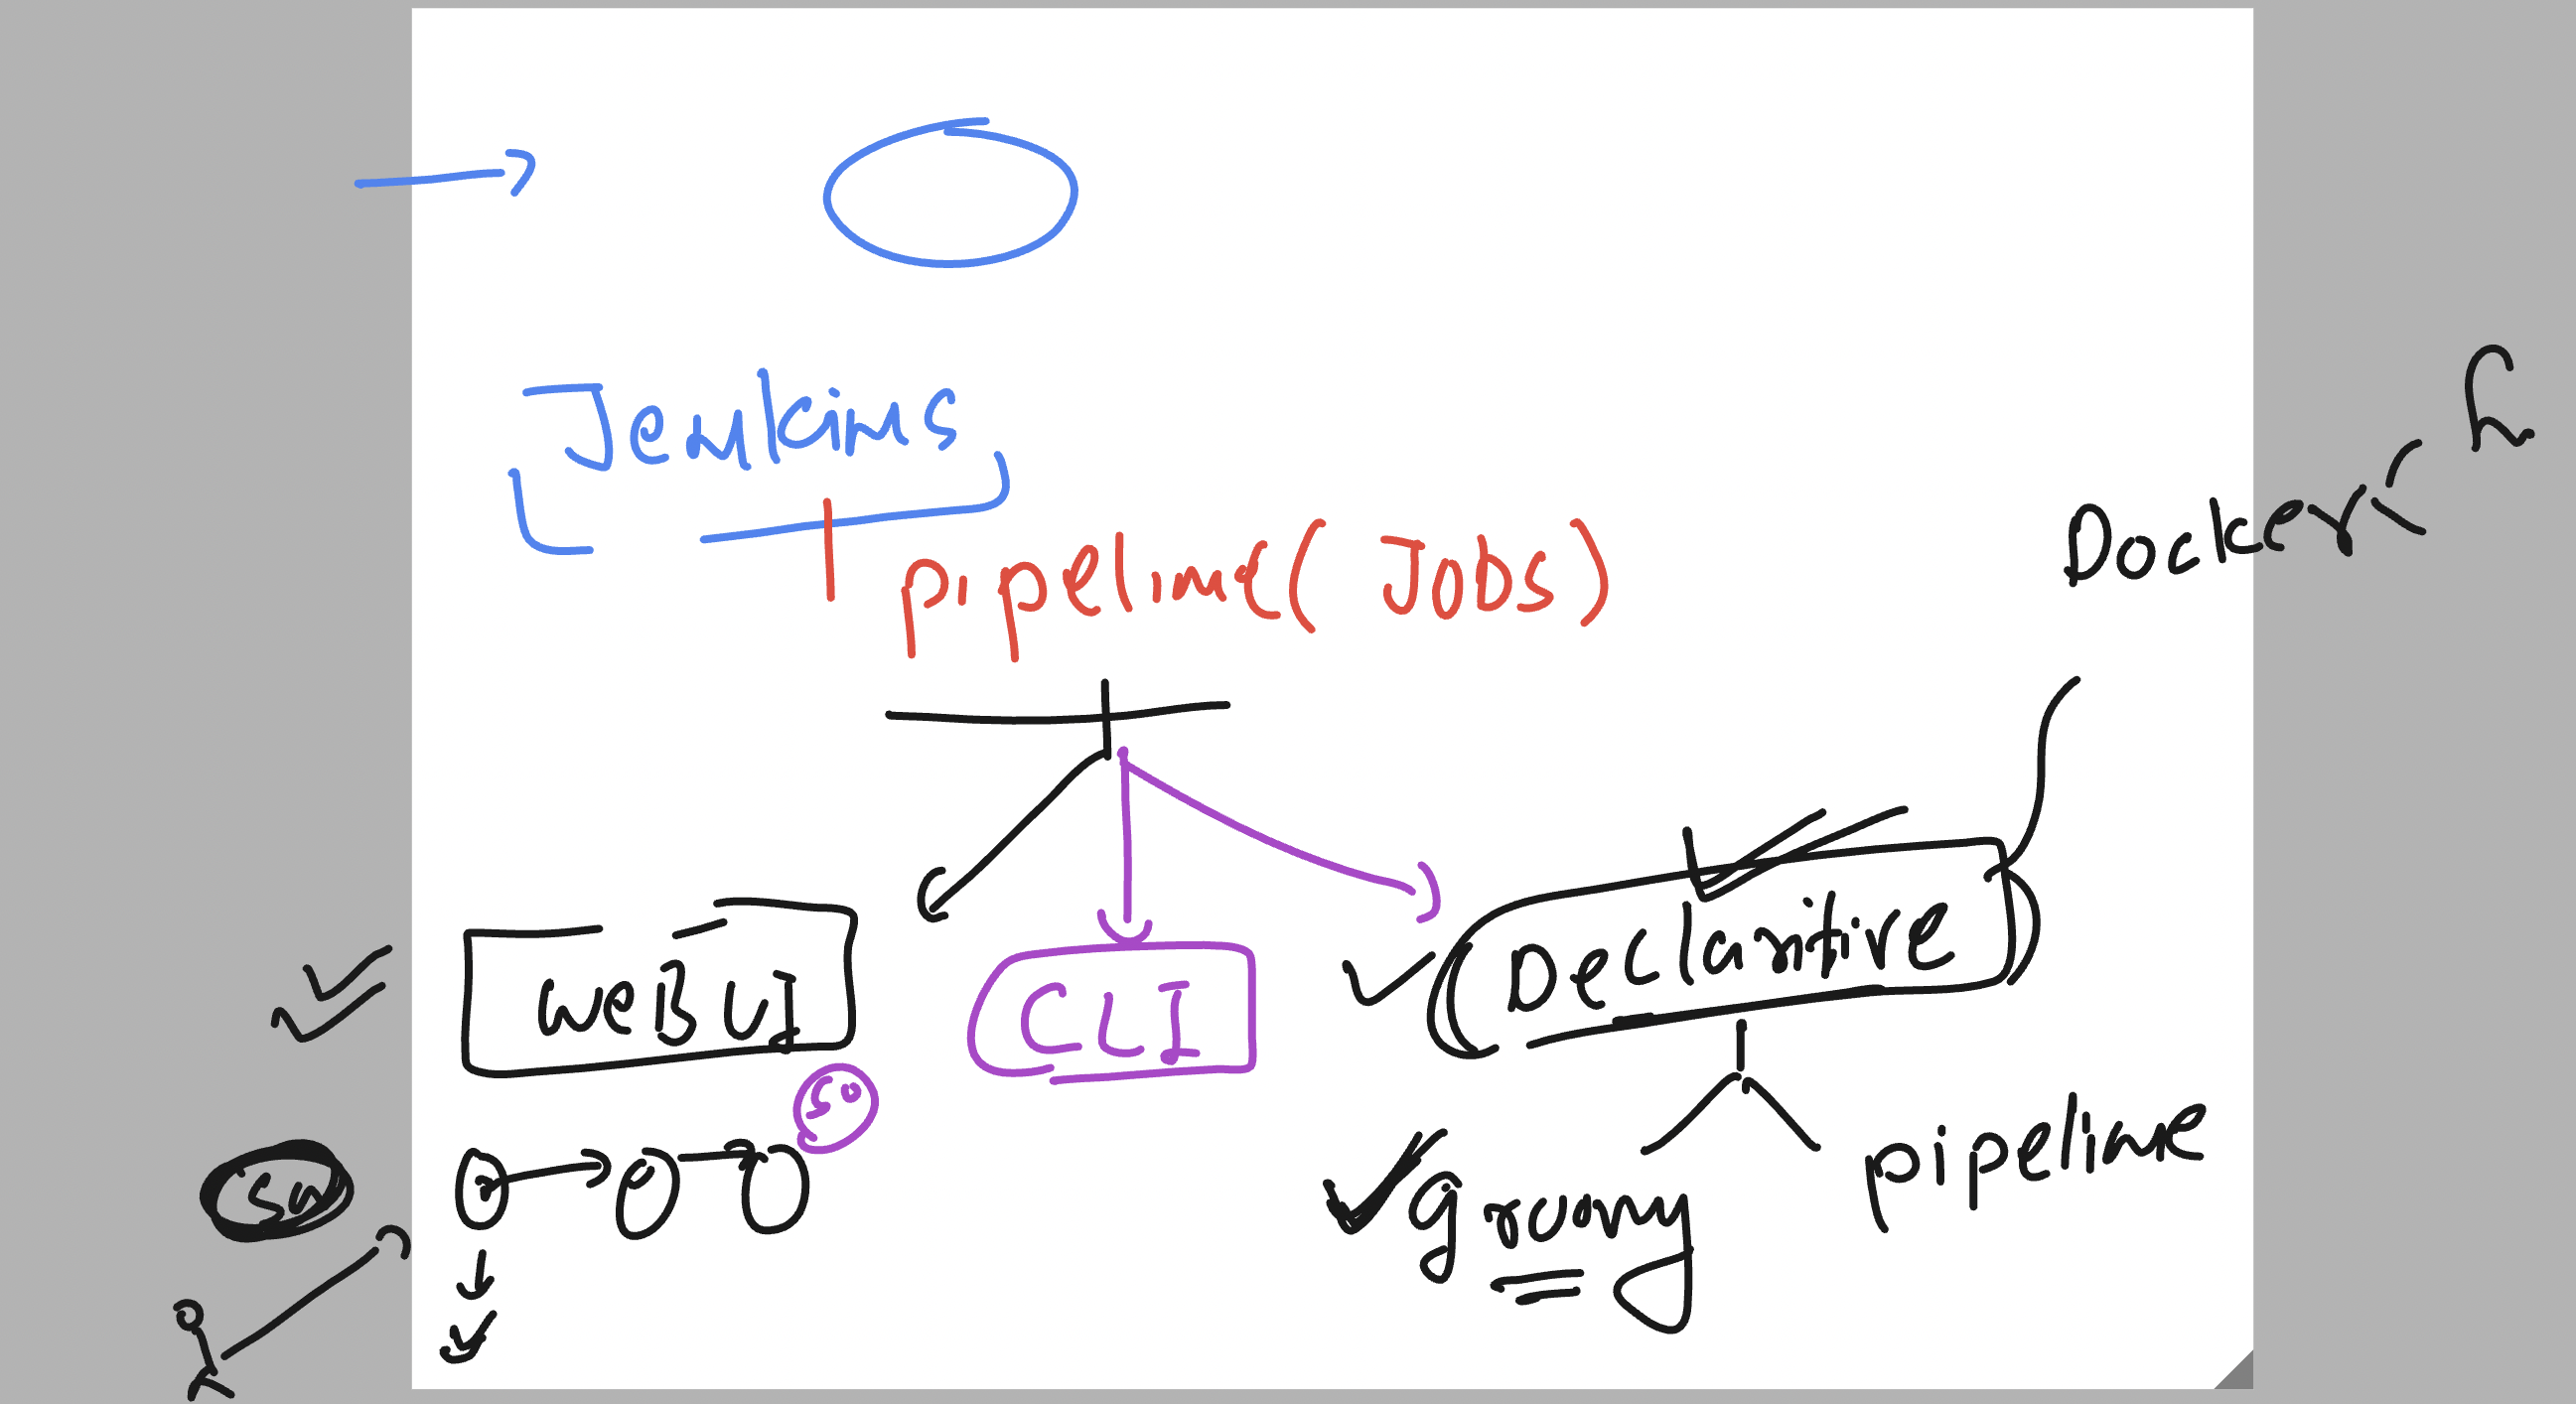 Jenkins
pipeline( Jobs)
Docker
WeB UI
CLI
Declaritive
50
groovy
pipeline